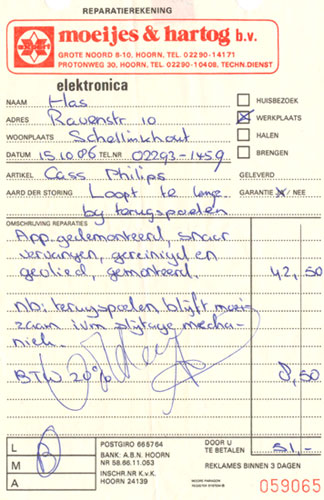 REPARATIEREKENING
expert
moeijes & hartog b.v.
GROTE NOORD 8-10, HOORN, TEL. 02290-14171
PROTONWEG 30, HOORN, TEL. 02290-10408, TECHN. DIENST
elektronica
NAAM Has
HUISBEZOEK
ADRES Ravenstr 10
WERKPLAATS
WOONPLAATS Schellinkhout
HALEN
DATUM 15.10.86 TEL.NR 02293-1459
BRENGEN
ARTIKEL Cass Philips
GELEVERD
AARD DER STORING Loopt te lange
GARANTIE JA / NEE
by terugspoelen
OMSCHRIJVING REPARATIES
App. gedemonteerd, snaar
vervangen, gereinigd en
geolied, gemonteerd. 42,50
nb: terugspoelen blijft moei
zaam ivm slijtage mecha-
niek.
BTW 20% 8,50
L
M
A
POSTGIRO 665764
BANK: A.B.N. HOORN
NR 58.66.11.063
INSCHR.NR K.v.K.
HOORN 24139
DOOR U
TE BETALEN 51,-
REKLAMES BINNEN 3 DAGEN
059065